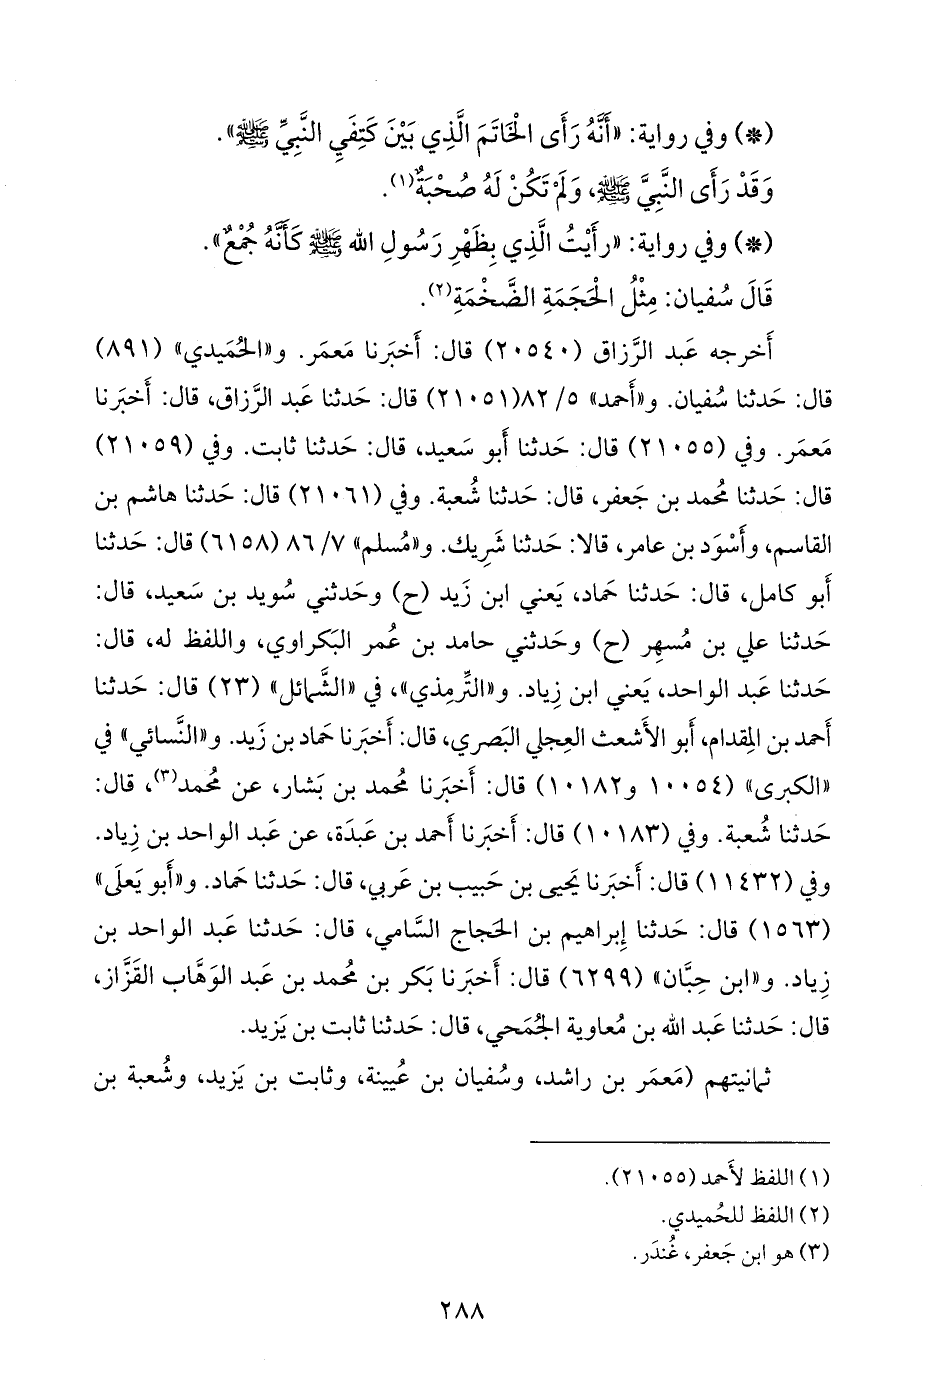 (*) وفي رواية: «أَنَّهُ رَأَى الْخَاتَمَ الَّذِي بَيْنَ كَتِفَيِ النَّبِيِّ ﷺ».
وَقَدْ رَأَى النَّبِيَّ ﷺ، وَلَمْ تَكُنْ لَهُ صُحْبَةٌ(١).
(*) وفي رواية: «رأَيْتُ الَّذِي بِظَهْرِ رَسُولِ الله ﷺ كَأَنَّهُ جُمْعٌ».
قَالَ سُفيان: مِثْلُ الْحَجَمَةِ الضَّخْمَةِ(٢).
أَخرجه عَبد الرَّزاق (٢٠٥٤٠) قال: أَخبَرنا مَعمَر. و«الحُمَيدي» (٨٩١)
قال: حَدثنا سُفيان. و«أَحمد» ٥/ ٨٢(٢١٠٥١) قال: حَدثنا عَبد الرَّزاق، قال: أَخبَرنا
مَعمَر. وفي (٢١٠٥٥) قال: حَدثنا أَبو سَعيد، قال: حَدثنا ثابت. وفي (٢١٠٥٩)
قال: حَدثنا مُحمد بن جَعفر، قال: حَدثنا شُعبة. وفي (٢١٠٦١) قال: حَدثنا هاشم بن
القاسم، وأَسْوَد بن عامر، قالا: حَدثنا شَرِيك. و«مُسلم» ٧/ ٨٦ (٦١٥٨) قال: حَدثنا
أَبو كامل، قال: حَدثنا حَماد، يَعني ابن زَيد (ح) وحَدثني سُويد بن سَعيد، قال:
حَدثنا علي بن مُسهِر (ح) وحَدثني حامد بن عُمر البَكراوي، واللفظ له، قال:
حَدثنا عَبد الواحد، يَعني ابن زِياد. و«التِّرمِذي»، في «الشَّمائل» (٢٣) قال: حَدثنا
أَحمد بن المِقدام، أَبو الأَشعث العِجلي البَصري، قال: أَخبَرنا حَماد بن زَيد. و«النَّسائي» في
«الكبرى» (١٠٠٥٤ و١٠١٨٢) قال: أَخبَرنا مُحمد بن بَشار، عن مُحمد(٣)، قال:
حَدثنا شُعبة. وفي (١٠١٨٣) قال: أَخبَرنا أَحمد بن عَبدَة، عن عَبد الواحد بن زِياد.
وفي (١١٤٣٢) قال: أَخبَرنا يَحيى بن حَبيب بن عَربي، قال: حَدثنا حَماد. و«أَبو يَعلَى»
(١٥٦٣) قال: حَدثنا إِبراهيم بن الحَجاج السَّامي، قال: حَدثنا عَبد الواحد بن
زِياد. و«ابن حِبَّان» (٦٢٩٩) قال: أَخبَرنا بَكر بن مُحمد بن عَبد الوَهَّاب القَزَّاز،
قال: حَدثنا عَبد الله بن مُعاوية الجُمَحي، قال: حَدثنا ثابت بن يَزيد.
ثمانيتهم (مَعمَر بن راشد، وسُفيان بن عُيينة، وثابت بن يَزيد، وشُعبة بن
(١) اللفظ لأَحمد (٢١٠٥٥).
(٢) اللفظ للحُميدي.
(٣) هو ابن جَعفر، غُندَر.
٢٨٨